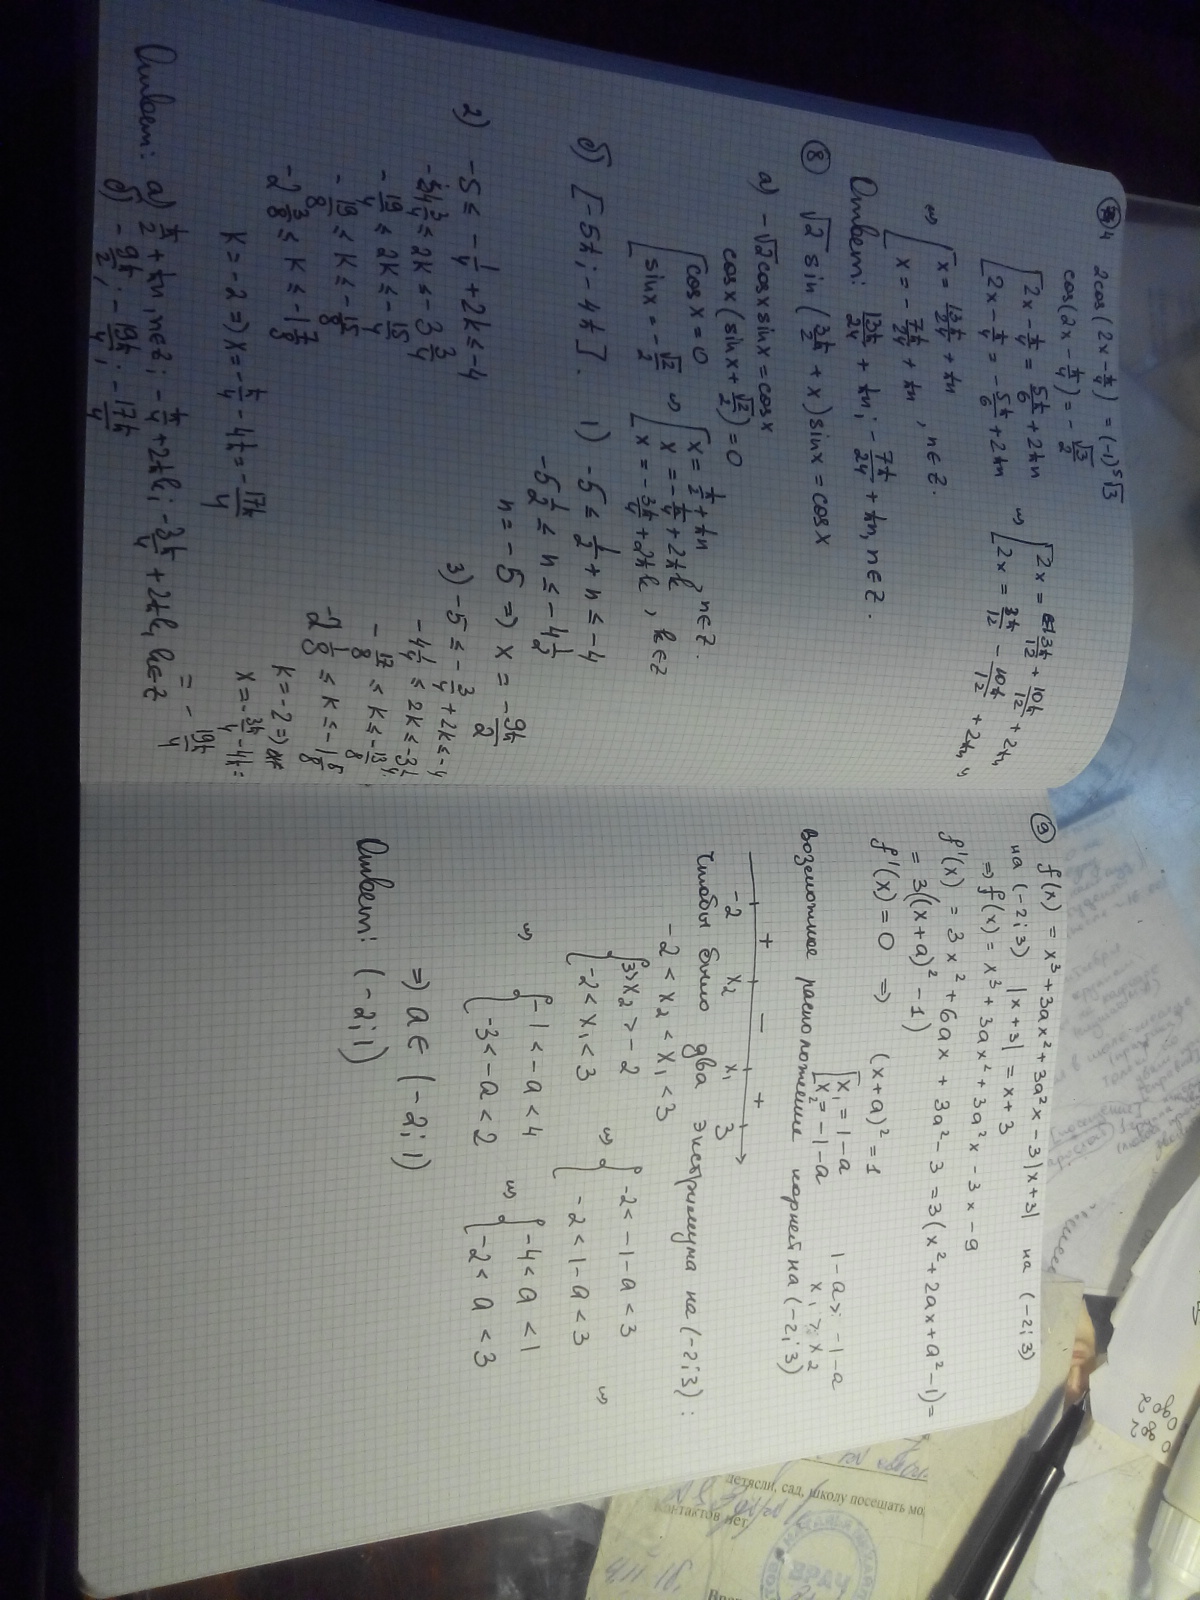 ④ 2cos(2x - π/4) = (-1)⁵√3
cos(2x - π/4) = -√3/2
[2x - π/4 = 5π/6 + 2πn
[2x - π/4 = -5π/6 + 2πn
⇔ [2x = 3π/12 + 10π/12 + 2πn
[2x = 3π/12 - 10π/12 + 2πn ⇔
⇔ [x = 13π/24 + πn
[x = -7π/24 + πn, n∈Z.
Ответ: 13π/24 + πn; -7π/24 + πn, n∈Z.
⑧ √2 sin(3π/2 + x) sinx = cosx
а) -√2cosx sinx = cosx
cosx(sinx + √2/2) = 0
[cosx = 0
[sinx = -√2/2
⇔ [x = π/2 + πn
x = -π/4 + 2πk n∈Z.
[x = -3π/4 + 2πk, k∈Z
б) [-5π; -4π]. 1) -5 ≤ 1/2 + n ≤ -4
-5 1/2 ≤ n ≤ -4 1/2
n = -5 ⇒ x = -9π/2
2) -5 ≤ -1/4 + 2k ≤ -4
-4 3/4 ≤ 2k ≤ -3 3/4
-19/4 ≤ 2k ≤ -15/4
-19/8 ≤ k ≤ -15/8
-2 3/8 ≤ k ≤ -1 7/8
k = -2 ⇒ x = -π/4 - 4π = -17π/4
3) -5 ≤ -3/4 + 2k ≤ -4
-4 1/4 ≤ 2k ≤ -3 1/4
-17/8 ≤ k ≤ -13/8
-2 1/8 ≤ k ≤ -1 5/8
k = -2 ⇒
x = -3π/4 - 4π =
= -19π/4
Ответ: а) π/2 + πn, n∈Z; -π/4 + 2πk; -3π/4 + 2πk, k∈Z
б) -9π/2; -19π/4; -17π/4
⑨ f(x) = x³ + 3ax² + 3a²x - 3|x+3| на (-2;3)
на (-2;3) |x+3| = x+3
⇒ f(x) = x³ + 3ax² + 3a²x - 3x - 9
f'(x) = 3x² + 6ax + 3a² - 3 = 3(x² + 2ax + a² - 1) =
= 3((x+a)² - 1)
f'(x) = 0 ⇒ (x+a)² = 1
[x₁ = 1-a
[x₂ = -1-a
1-a > -1-a
x₁ > x₂
возможное расположение корней на (-2;3)
+ - +
-2 x₂ x₁ 3
Чтобы было два экстримума на (-2;3):
-2 < x₂ < x₁ < 3
{3 > x₂ > -2
{-2 < x₁ < 3
⇔ {-2 < -1-a < 3
{-2 < 1-a < 3 ⇔
⇔ {-1 < -a < 4
{-3 < -a < 2
⇔ {-4 < a < 1
{-2 < a < 3
⇒ a ∈ (-2;1)
Ответ: (-2;1)
детясли, сад, школу посещать мо
Контактов нет